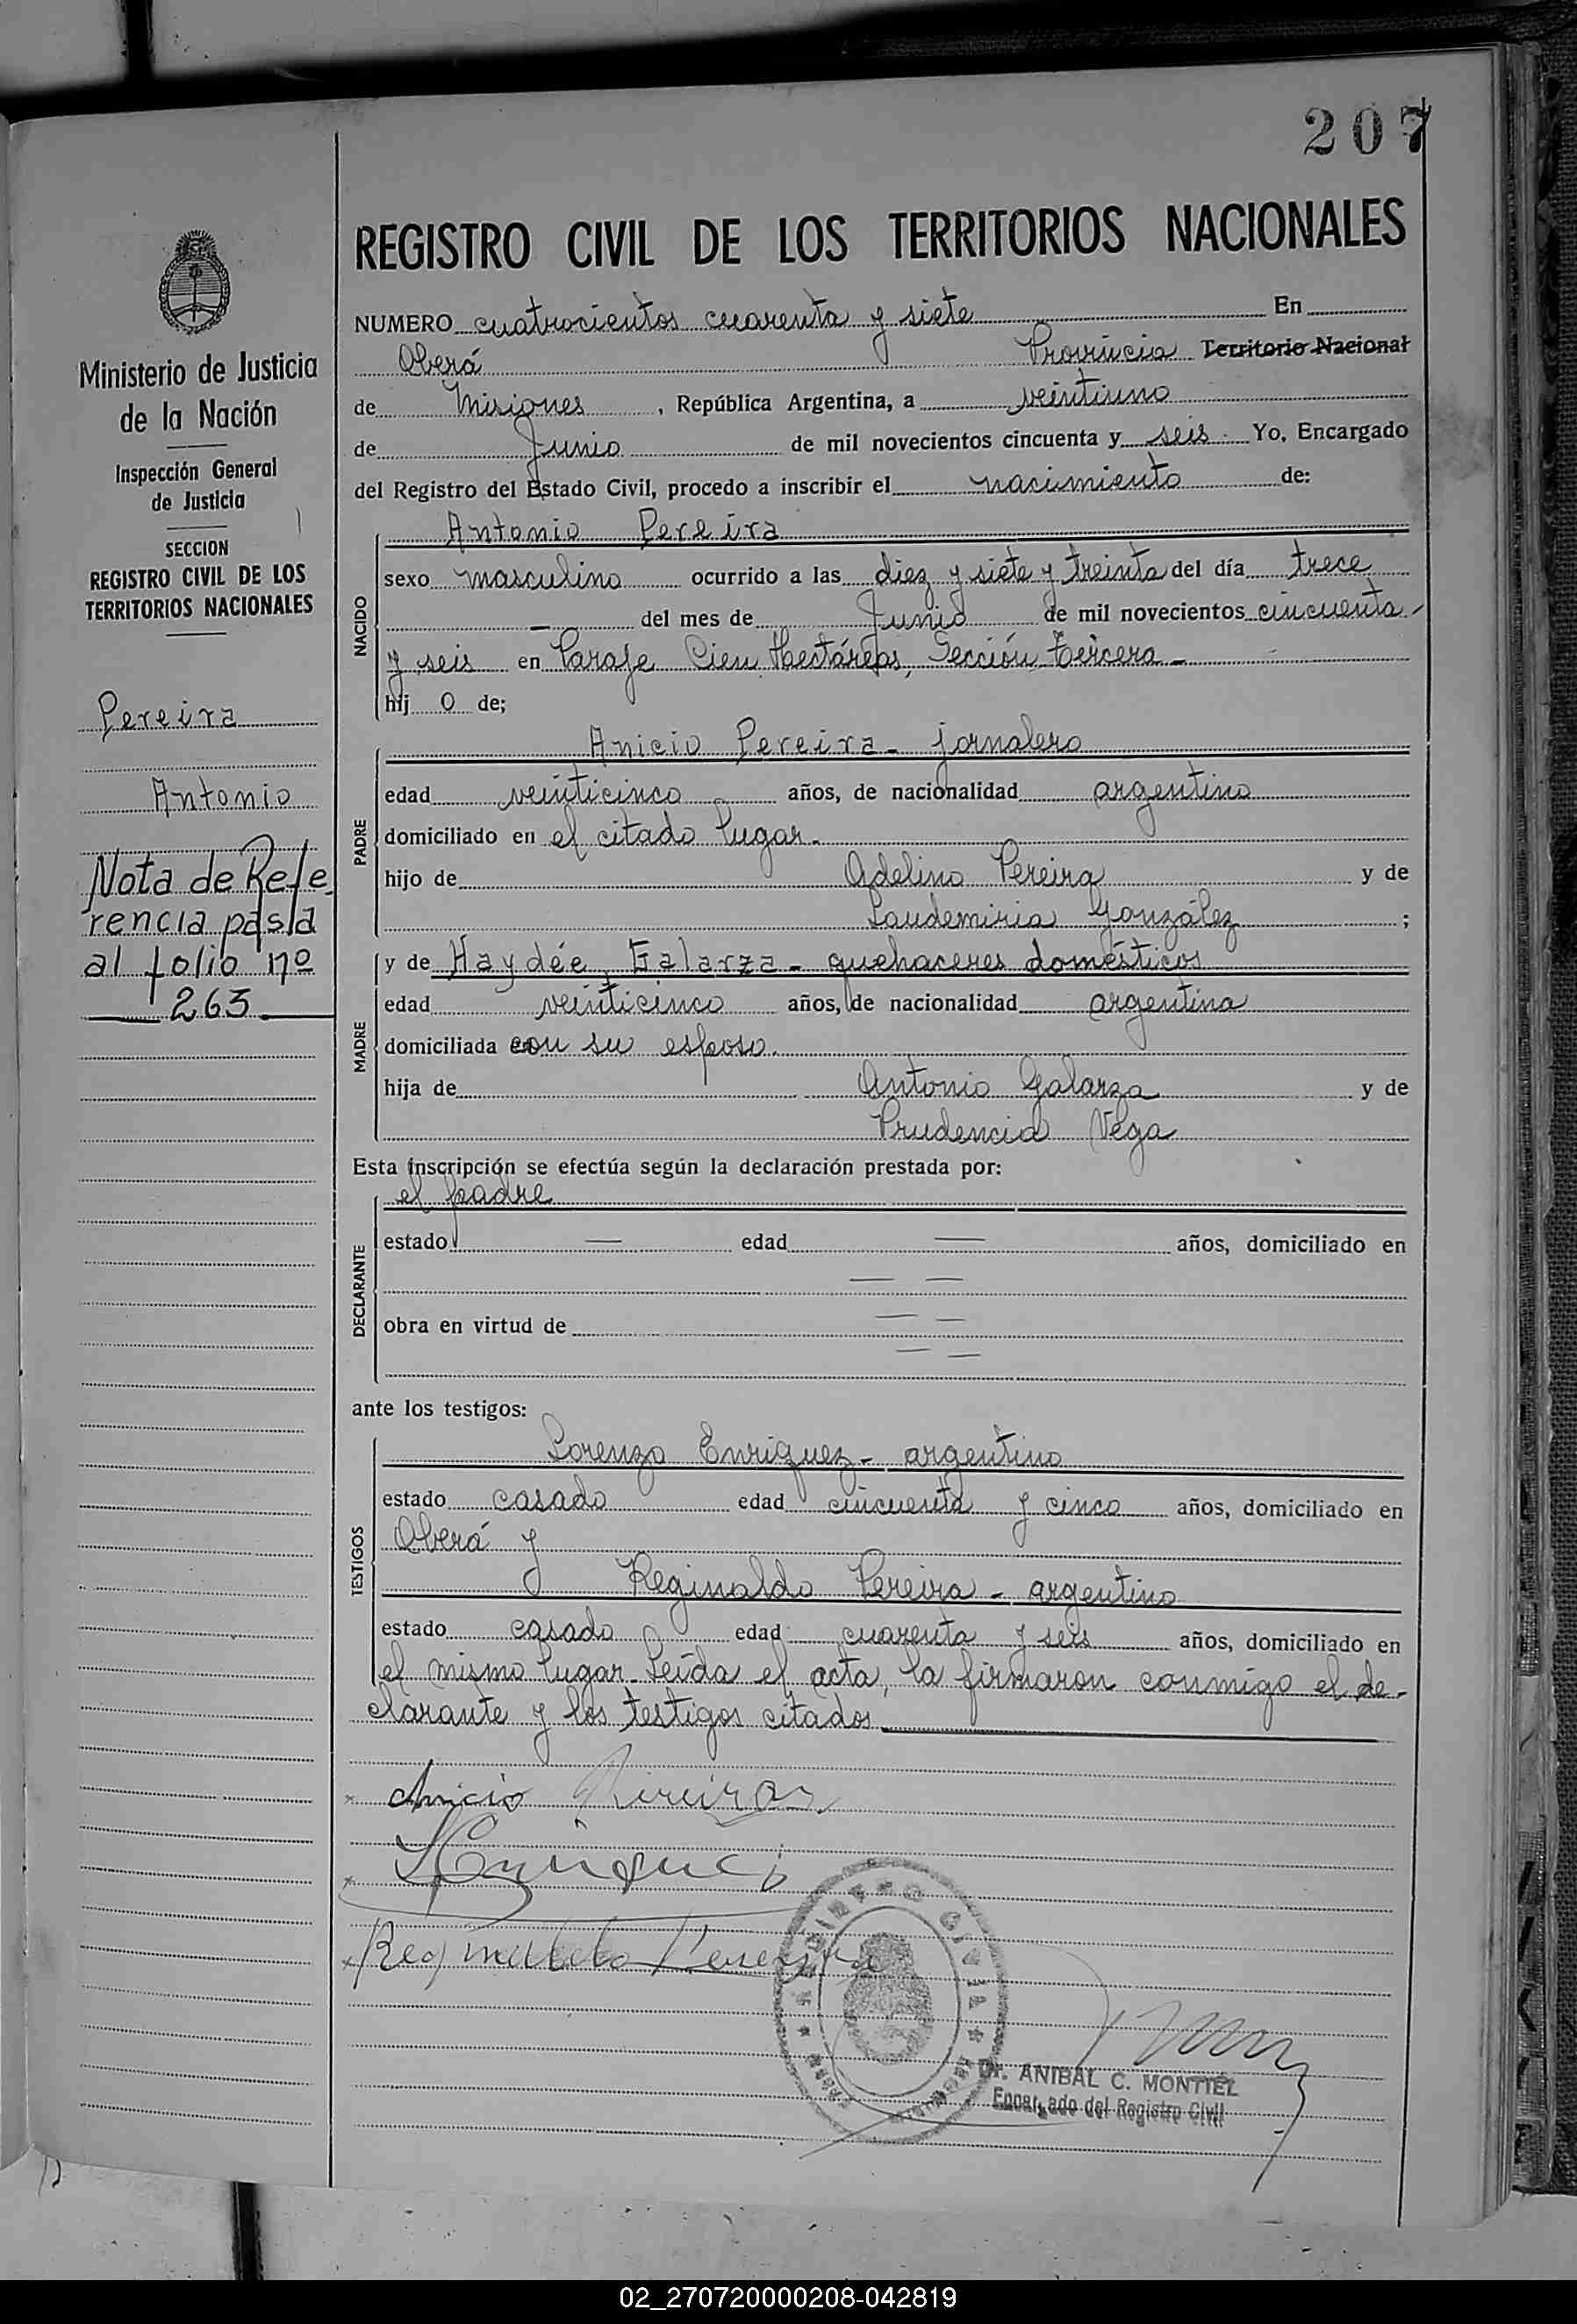 207
REGISTRO CIVIL DE LOS TERRITORIOS NACIONALES
Ministerio de Justicia
de la Nación
Inspección General
de Justicia
SECCION
REGISTRO CIVIL DE LOS
TERRITORIOS NACIONALES
Pereira
Antonio
Nota de Refe
rencia pasa
al folio nº
263
NUMERO cuatrocientos cuarenta y siete En
Oberá Provincia Territorio Nacional
de Misiones, República Argentina, a veintiuno
de Junio de mil novecientos cincuenta y seis. Yo, Encargado
del Registro del Estado Civil, procedo a inscribir el nacimiento de:
NACIDO
Antonio Pereira
sexo masculino ocurrido a las diez y siete y treinta del día trece
— del mes de Junio de mil novecientos cincuenta
y seis en Paraje Cien Hectáreas, Sección tercera -
hij o de;
PADRE
Anicio Pereira - jornalero
edad veinticinco años, de nacionalidad argentino
domiciliado en el citado lugar.
hijo de Adelino Pereira y de
Laudemiria González ;
MADRE
y de Haydée Galarza - quehaceres domésticos
edad veinticinco años, de nacionalidad argentina
domiciliada con su esposo.
hija de Antonio Galarza y de
Prudencia Vega
Esta inscripción se efectúa según la declaración prestada por:
DECLARANTE
el padre
estado — edad — años, domiciliado en
— —
obra en virtud de — —
— —
ante los testigos:
TESTIGOS
Lorenzo Enriquez - argentino
estado casado edad cincuenta y cinco años, domiciliado en
Oberá y
Reginaldo Pereira - argentino
estado casado edad cuarenta y seis años, domiciliado en
el mismo lugar. Leída el acta, la firmaron conmigo el de-
clarante y los testigos citados
Anicio Pireira
REGISTRO CIVIL
Dr. ANIBAL C. MONTIEL
Encargado del Registro Civil
02_270720000208-042819